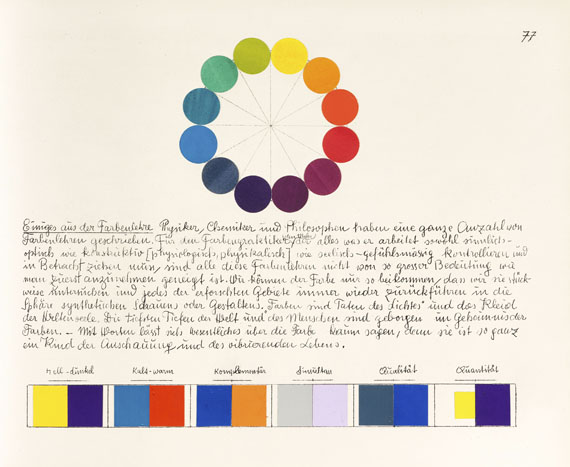 77
Einiges aus der Farbenlehre Physiker, Chemiker und Philosophen haben eine ganze Anzahl von
Farbenlehren geschrieben. Für den Farbengestalter, der alles was er arbeitet sowohl sinnlich-
optisch wie konstruktiv [physiologisch, physikalisch] wie seelisch-gefühlsmässig kontrollieren und
in Betracht ziehen muss, sind alle diese Farbenlehren nicht von so grosser Bedeutung wie
man zuerst anzunehmen geneigt ist. Wir können der Farbe nur so beikommen, dass wir sie stück-
weise untersuchen und jedes der erforschten Gebiete immer wieder zurückführen in die
Sphäre synthetischen Schauens oder Gestaltens. Farben sind Taten des Lichtes und das Kleid
der Weltenseele. Die tiefsten Tiefen der Welt und des Menschen sind geborgen im Geheimnis der
Farben. – Mit Worten lässt sich wesentliches über die Farbe kaum sagen, denn sie ist so ganz
ein Kind der Anschauung und des vibrierenden Lebens.
Hell-dunkel Kalt-warm Komplementär Simultan Qualität Quantität